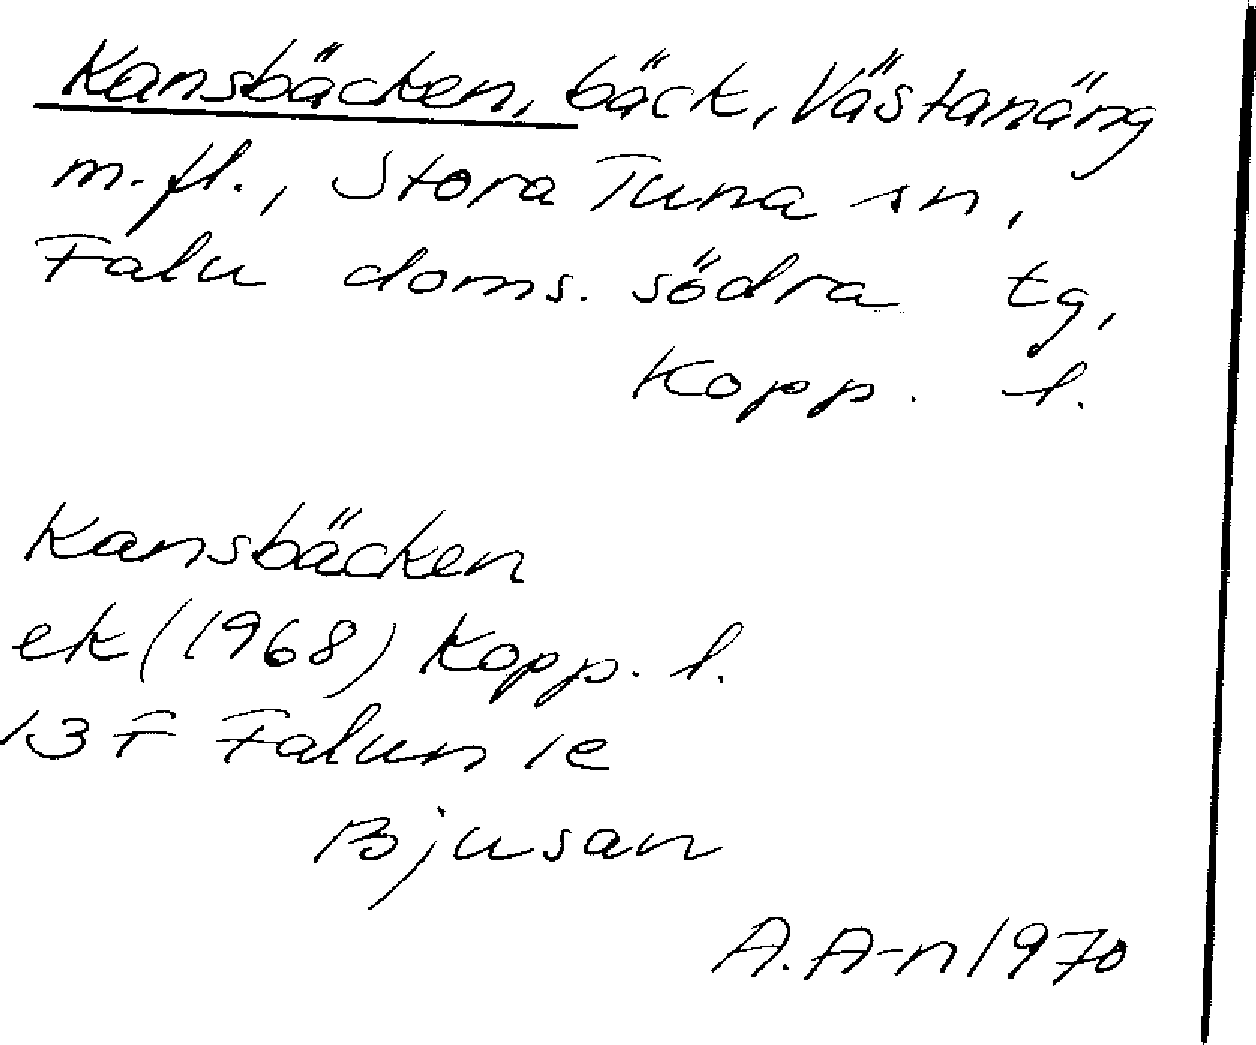 Kansbäcken, bäck, Västanäng
m.fl., Stora Tuna sn,
Falu doms. södra tg,
Kopp. l.
Kansbäcken
ek (1968) Kopp. l.
13 F Falun 1e
Bjusan
A.A-n 1970